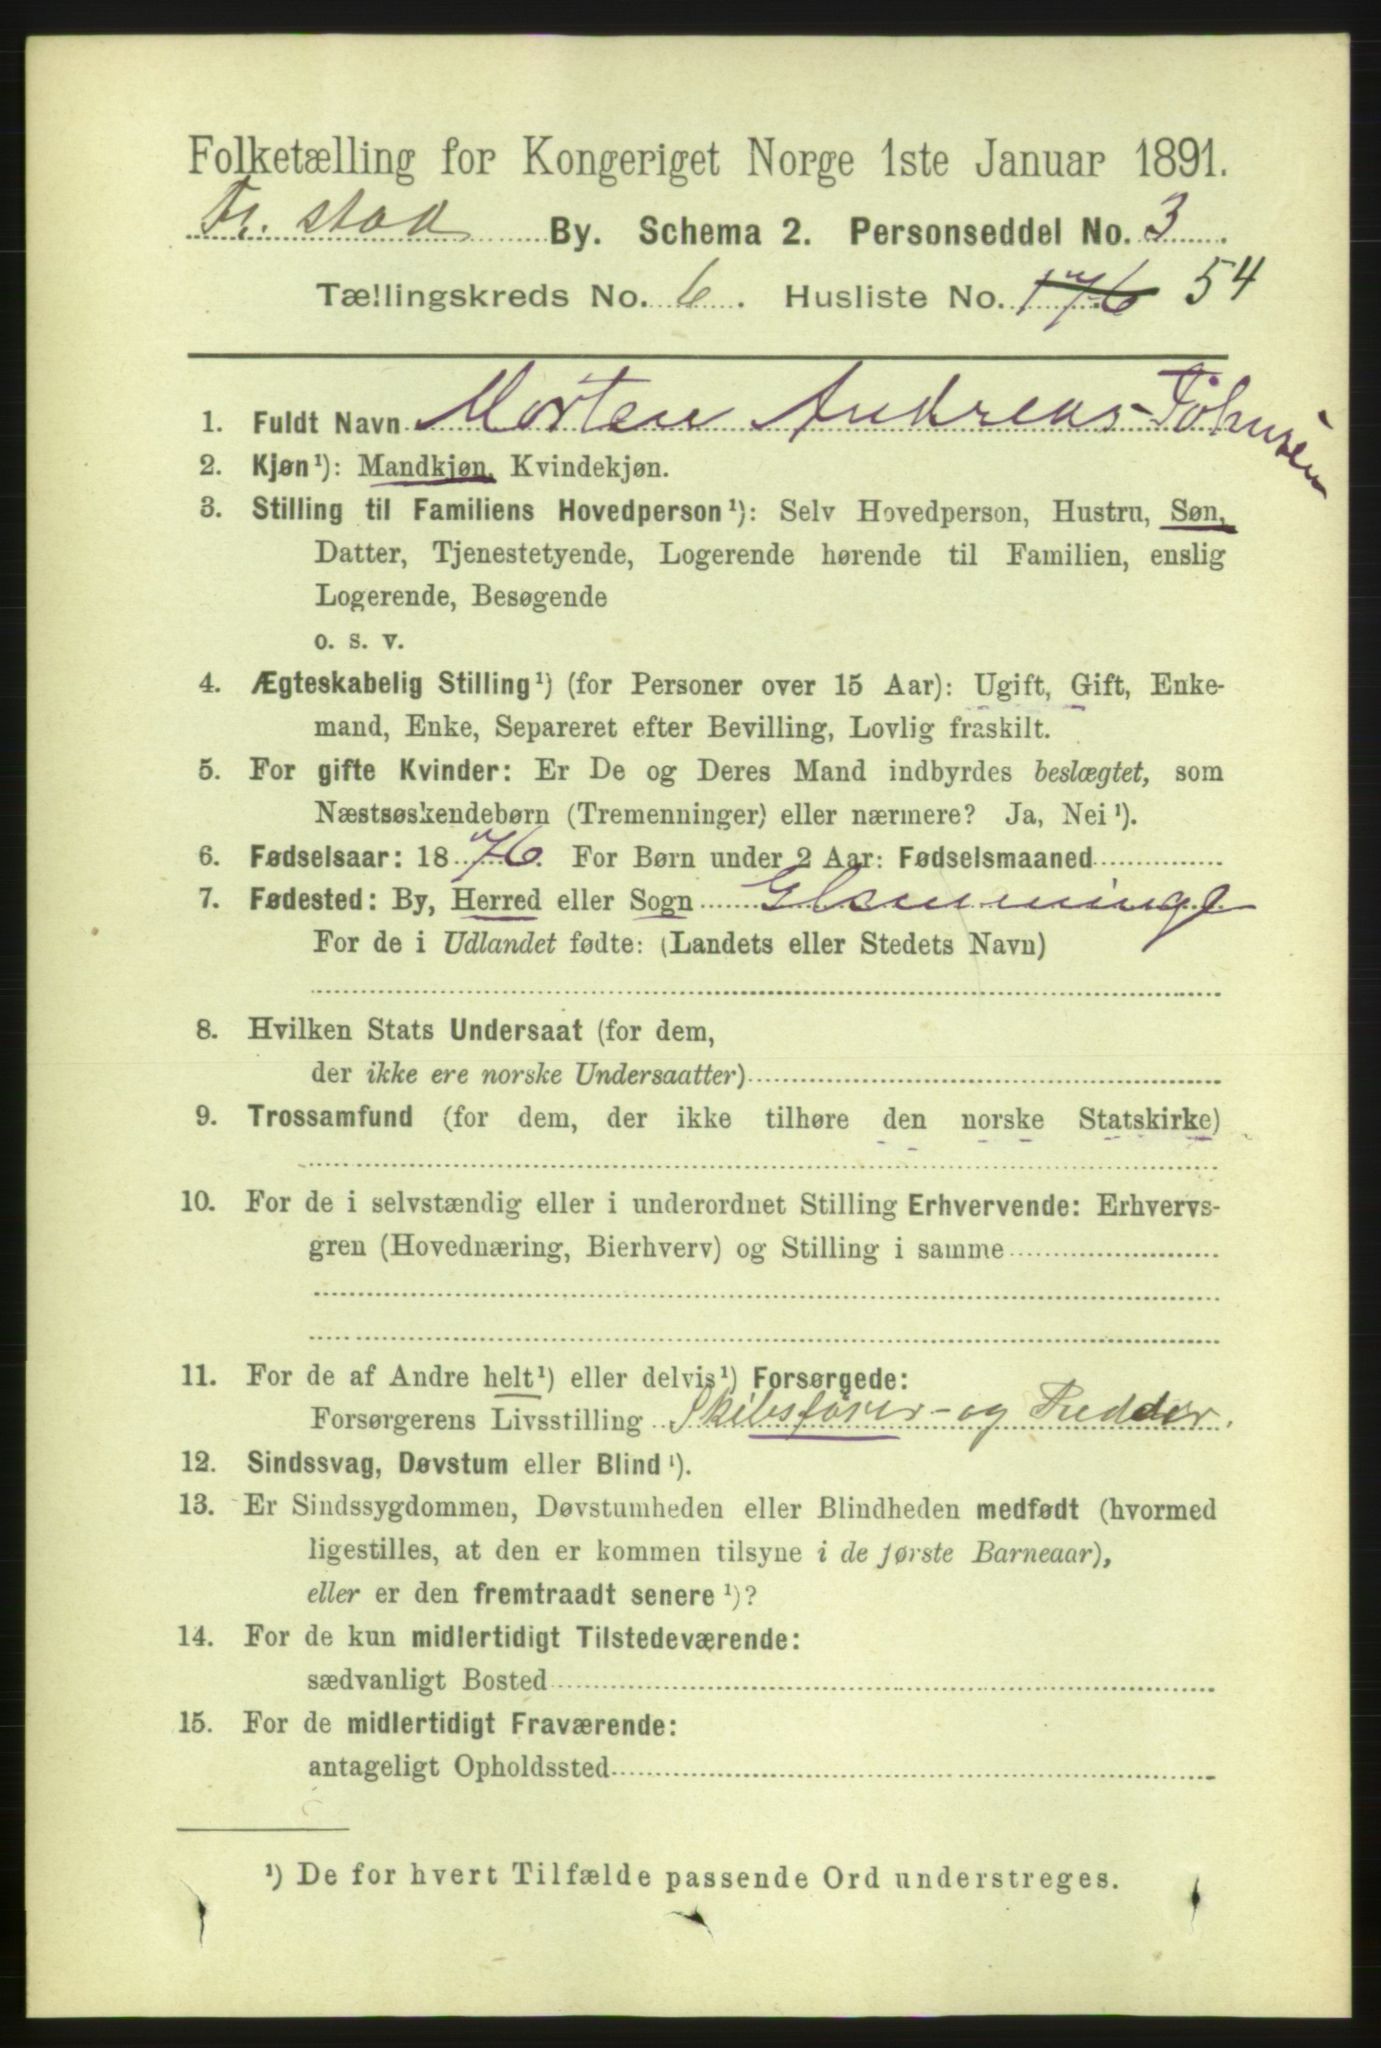 Folketælling for Kongeriget Norge 1ste Januar 1891.
Fr. stad By. Schema 2. Personseddel No. 3
Tællingskreds No. 6. Husliste No. 176 54
1. Fuldt Navn Morten Andreas Johnsen
2. Kjøn¹): Mandkjøn, Kvindekjøn.
3. Stilling til Familiens Hovedperson¹): Selv Hovedperson, Hustru, Søn,
Datter, Tjenestetyende, Logerende hørende til Familien, enslig
Logerende, Besøgende
o. s. v.
4. Ægteskabelig Stilling¹) (for Personer over 15 Aar): Ugift, Gift, Enke-
mand, Enke, Separeret efter Bevilling, Lovlig fraskilt.
5. For gifte Kvinder: Er De og Deres Mand indbyrdes beslægtet, som
Næstsøskendebørn (Tremenninger) eller nærmere? Ja, Nei¹).
6. Fødselsaar: 1876. For Børn under 2 Aar: Fødselsmaaned
7. Fødested: By, Herred eller Sogn Glemminge
For de i Udlandet fødte: (Landets eller Stedets Navn)
8. Hvilken Stats Undersaat (for dem,
der ikke ere norske Undersaatter)
9. Trossamfund (for dem, der ikke tilhøre den norske Statskirke)
10. For de i selvstændig eller i underordnet Stilling Erhvervende: Erhvervs-
gren (Hovednæring, Bierhverv) og Stilling i samme
11. For de af Andre helt¹) eller delvis¹) Forsørgede:
Forsørgerens Livsstilling Skibsfører - og Redder.
12. Sindssvag, Døvstum eller Blind¹).
13. Er Sindssygdommen, Døvstumheden eller Blindheden medfødt (hvormed
ligestilles, at den er kommen tilsyne i de første Barneaar),
eller er den fremtraadt senere¹)?
14. For de kun midlertidigt Tilstedeværende:
sædvanligt Bosted
15. For de midlertidigt Fraværende:
antageligt Opholdssted
¹) De for hvert Tilfælde passende Ord understreges.